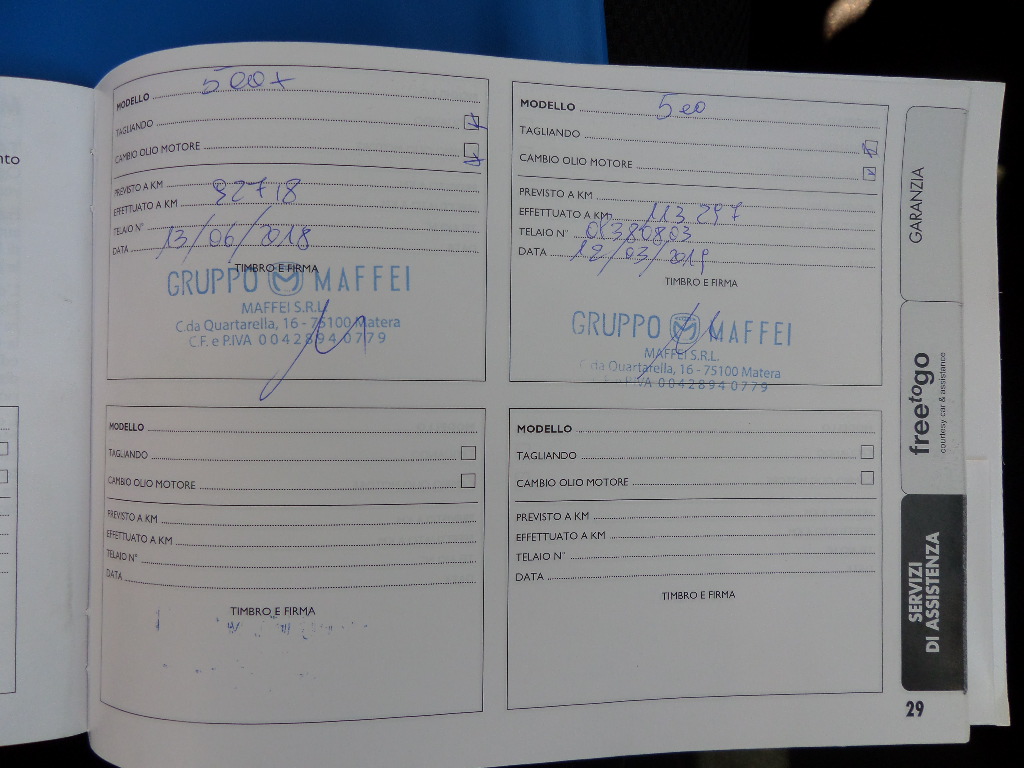 nto
MODELLO 500X
TAGLIANDO
CAMBIO OLIO MOTORE
PREVISTO A KM
EFFETTUATO A KM 92718
TELAIO N°
DATA 13/06/2018
TIMBRO E FIRMA
GRUPPO MAFFEI
MAFFEI S.R.L.
C.da Quartarella, 16 - 75100 Matera
C.F. e P.IVA 00428940779
MODELLO 500
TAGLIANDO
CAMBIO OLIO MOTORE
PREVISTO A KM
EFFETTUATO A KM 113297
TELAIO N° 0J380803
DATA 12/03/2019
TIMBRO E FIRMA
GRUPPO MAFFEI
MAFFEI S.R.L.
C.da Quartarella, 16 - 75100 Matera
P.IVA 00428940779
MODELLO
TAGLIANDO
CAMBIO OLIO MOTORE
PREVISTO A KM
EFFETTUATO A KM
TELAIO N°
DATA
TIMBRO E FIRMA
MODELLO
TAGLIANDO
CAMBIO OLIO MOTORE
PREVISTO A KM
EFFETTUATO A KM
TELAIO N°
DATA
TIMBRO E FIRMA
GARANZIA
freetogo
courtesy car & assistance
SERVIZI
DI ASSISTENZA
29